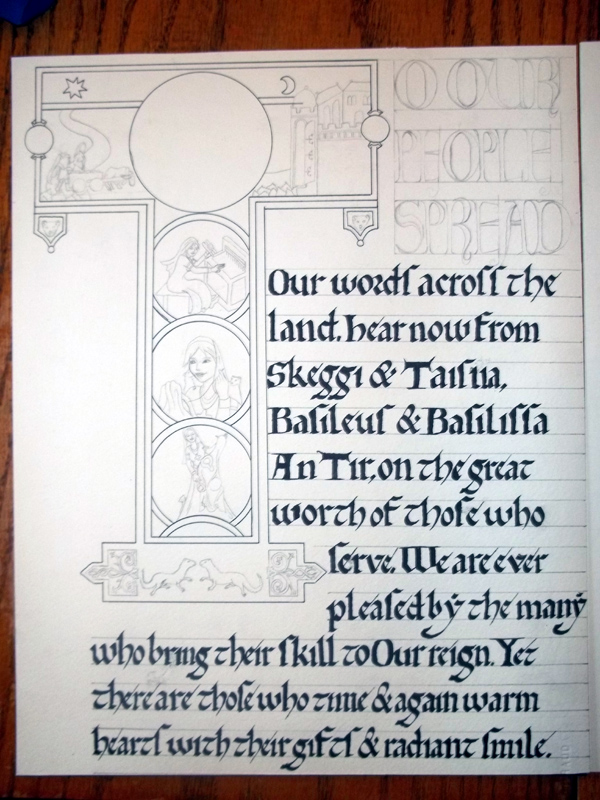 TO OUR
PEOPLE
SPREAD
Our wordſ acroſſ the
land, hear now from
Skeggi & Taiſiia,
Baſileuſ & Baſiliſſa
An Tir, on the great
worth of thoſe who
ſerve. We are ever
pleaſed by the many
who bring their ſkill to Our reign. Yet
there are thoſe who time & again warm
heartſ with their giftſ & radiant ſmile.